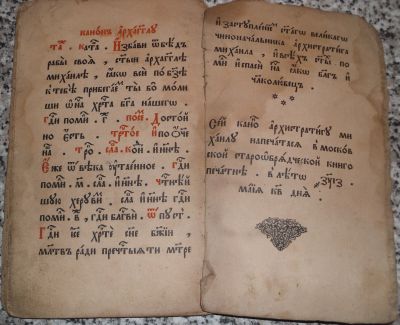 канонъ а҆рха́гг҃лу
та̀ . ката . И҆зба́ви ѿ бѣ́дъ
рабы̑ своѧ̑ , ст҃ы́й а҆рха́гг҃ле
михаи́ле , ꙗ҆́кѡ всѝ по бз҃ѣ
к тебѣ̀ прибега́ем ты̀ бо мо́ли
ши ѡ҆ на́с хр҃та̀ бг҃а на́шегѡ .
гд҃и поми . г҃ . посе́м . Досто́й
но є҆́сть трт҃ое и҆ поуче́
на . тро . сла́ . ко́н . и҆ ны́нѣ
Є҆́же ѿ вѣ́ка ᲂу҆тае́нное . гд҃и
поми . м҃ . сла . и҆ ны́нѣ . чт҃нѣ́йи
шую херуви . сла . и҆ ны́нѣ . гд҃и
поми . в҃ . гд҃и блг҃ви . ѿпу́ст .
Гд҃и і҆с҃е хр҃тѐ сн҃е бж҃їи ,
мл҃твъ ра́ди преч҃тыѧ ти мт҃ре
и҆ заступле́нїем ст҃а́гѡ вели́кагѡ
чинонача́льника а҆рхистрати́га
михаи́ла , и҆ всѣ́х ст҃ы́х по
ми́ и҆ спаси́ на́с ꙗ҆́кѡ бл҃гъ и҆
чл҃колю́бецъ .
Се́й кано́ а҆рхистрати́гу ми
хаи́лу напеча́тасѧ в моско́в
ской старо ѻ҆брѧ́дческой кни́го
печа́тнѣ . в лѣ́то
м҃аїа к҃в днѧ̀ .